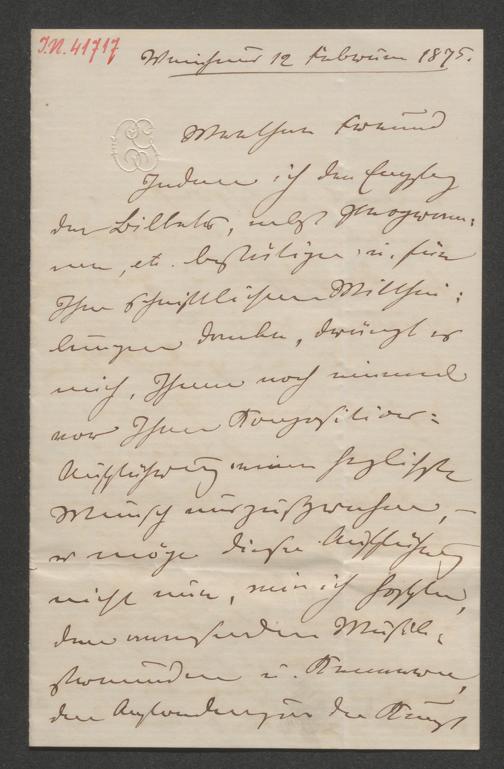 I.N. 41717
München 12 Februar 1875.
Werther Freund
Indem ich den Empfang
der Billets, nebst Program¬
men, etc. bestätige u. für
Ihre schriftlichen Mitthei¬
lungen danke, drängt es
mich, Ihnen noch einmal
vor Ihrer Kompositions¬
Aufführung meinen herzlichsten
Wunsch auszusprechen, –
es möge diese Aufführung
nicht nur, wie ich hoffe,
den anwesenden Musik¬
freunden u. Kennern,
den der Kunst